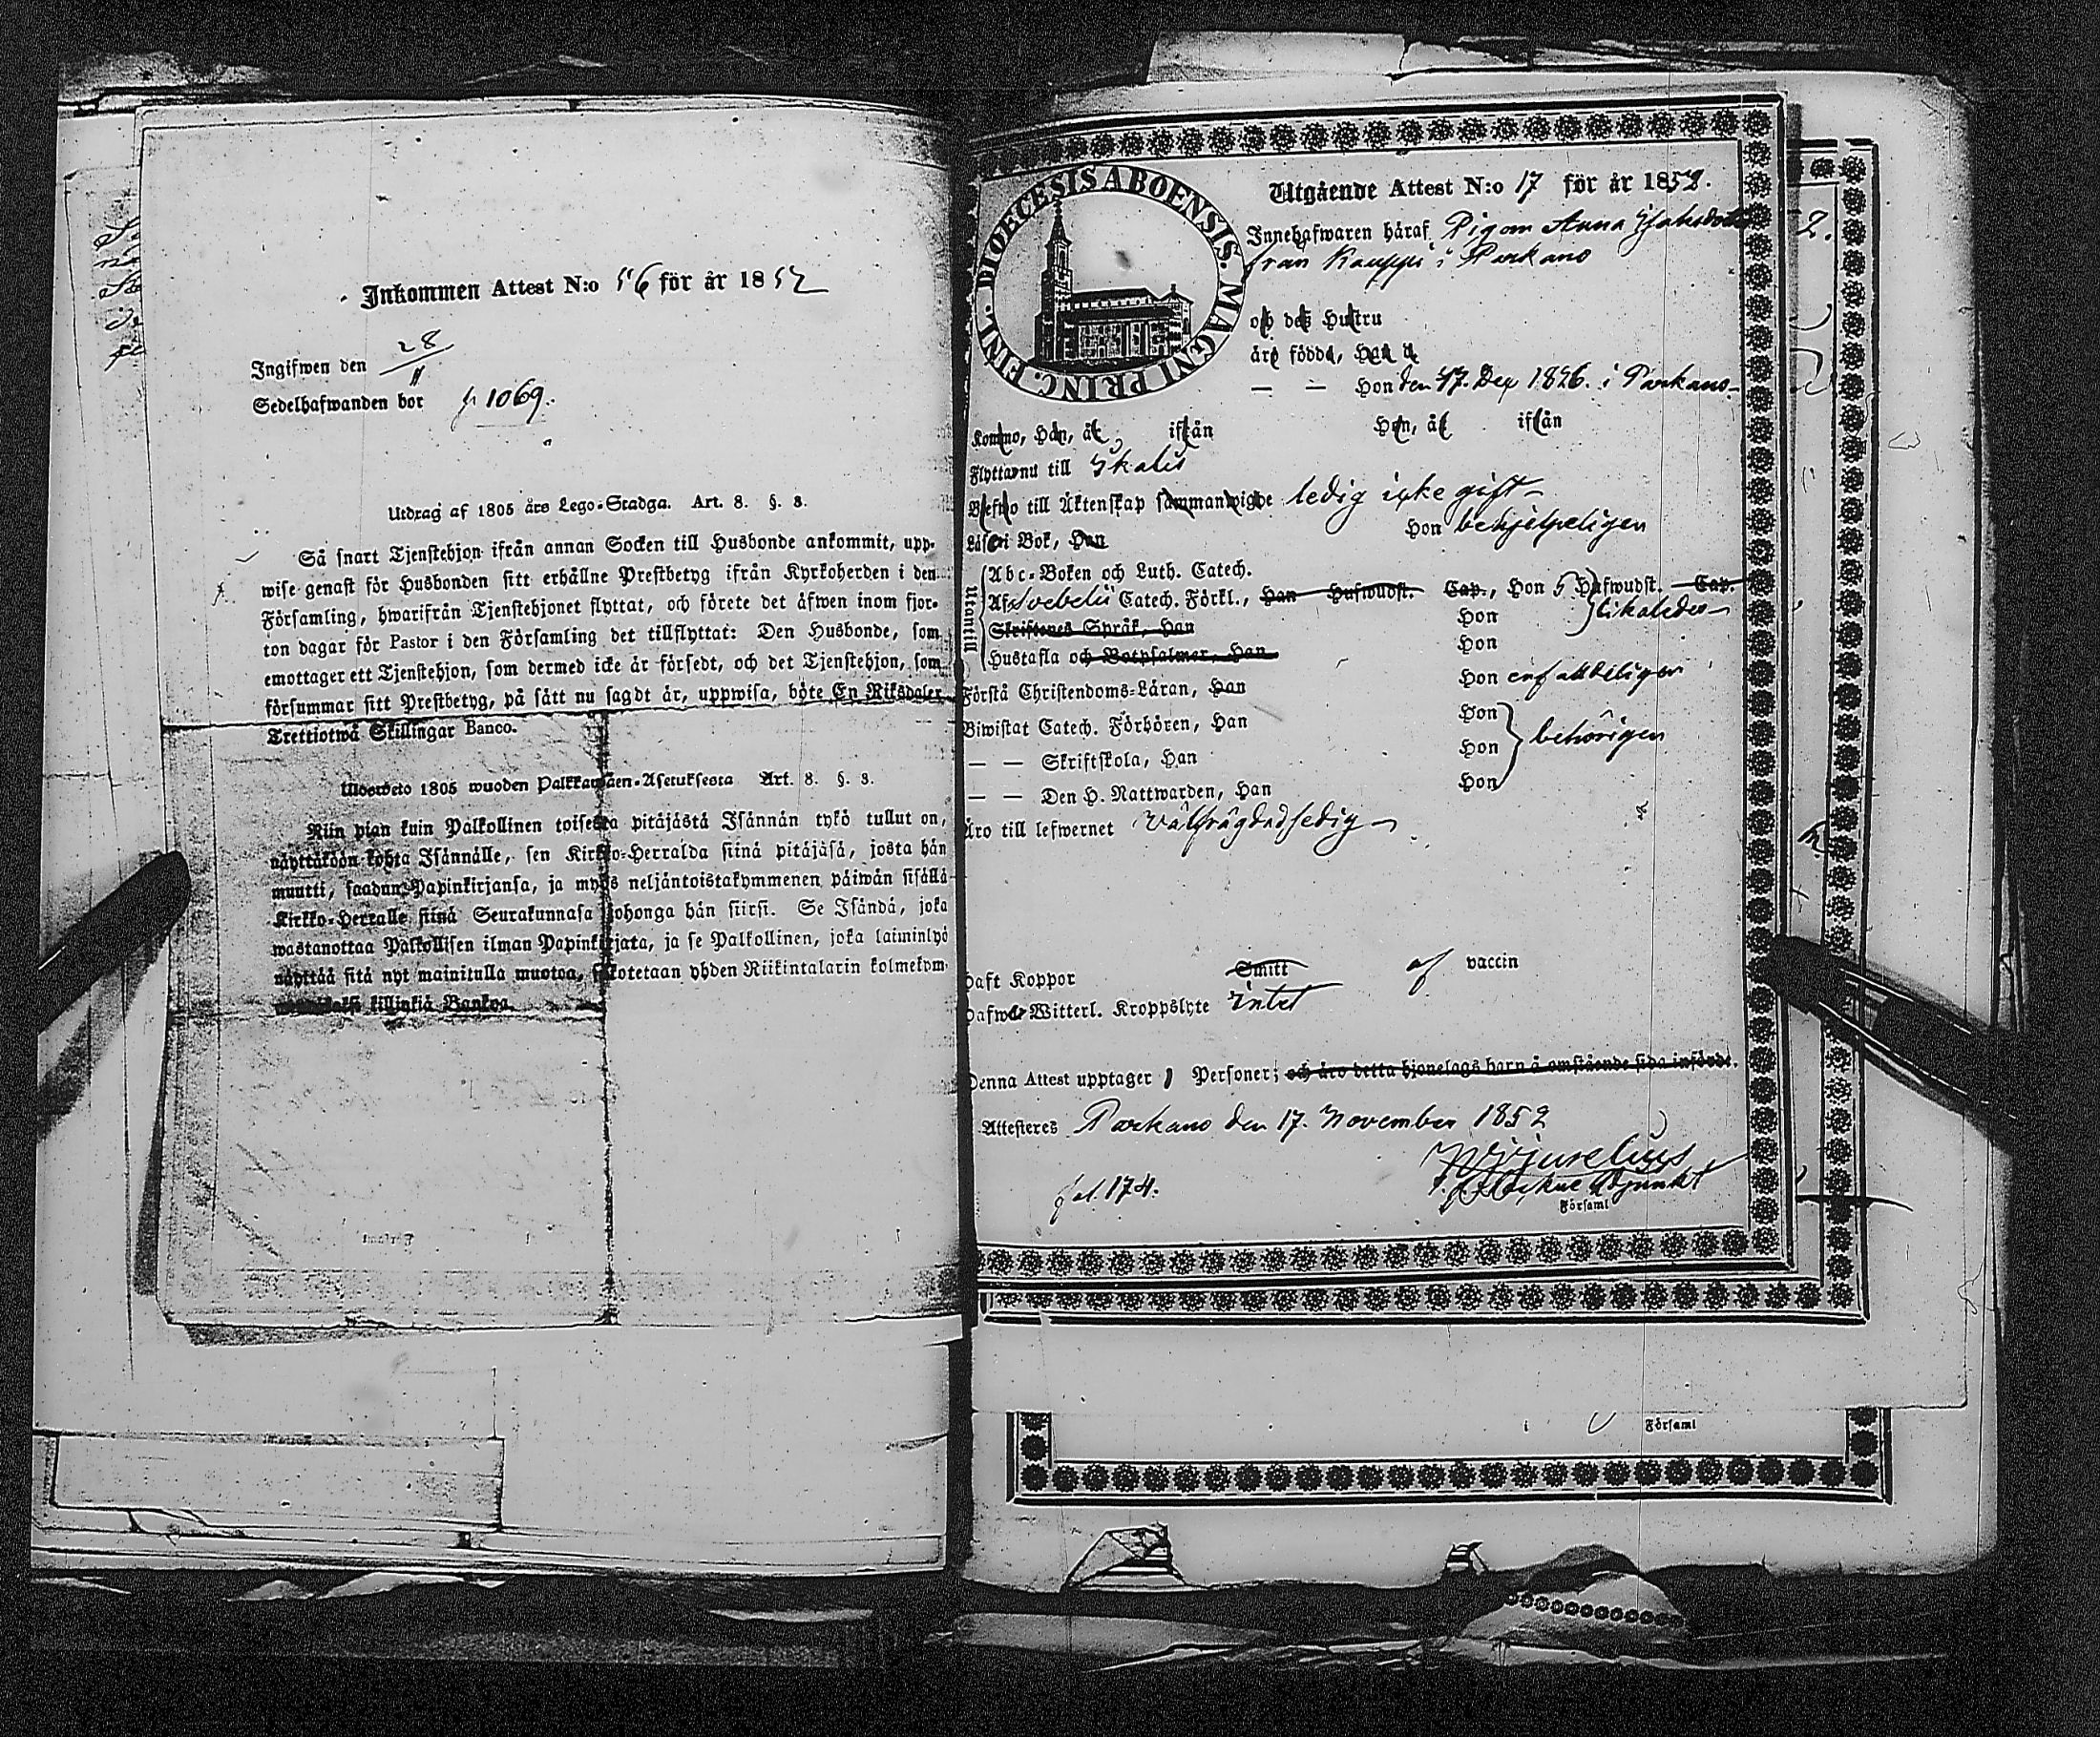 Inkommen Attest N:o 56 för år 1852
Ingifwen den 28/11
Sedelhafwanden bor p. 1069.
Utdrag af 1805 års Lego-Stadga. Art. 8. §. 3.
Så snart Tjenstehjon ifrån annan Socken till Husbonde ankommit, upp-
wise genast för Husbonden sitt erhållne Prestbetyg ifrån Kyrkoherden i den
Församling, hwarifrån Tjenstehjonet flyttat, och förete det äfwen inom fjor-
ton dagar för Pastor i den Församling det tillflyttat: Den Husbonde, som
emottager ett Tjenstehjon, som dermed icke är försedt, och det Tjenstehjon, som
försummar sitt Prestbetyg, på sätt nu sagdt är, uppwisa, böte En Riksdaler
Trettiotwå Skillingar Banco.
1805 wuoden Palkkawäen-Asetuksesta Art. 8. §. 3.
Niin pian kuin Palkollinen toisesta pitäjästä Isännän tykö tullut on,
näyttäköön kohta Isännälle, sen Kirkko-Herralda siinä pitäjäsä, josta hän
muutti, saadun Papinkirjansa, ja myös neljäntoistakymmenen päiwän sisällä
Kirkko-Herralle siinä Seurakunnasa johonga hän siirsi. Se Isändä, joka
wastanottaa Palkollisen ilman Papinkirjata, ja se Palkollinen, joka laiminlyö
näyttää sitä nyt mainitulla muotoa, sakotetaan yhden Riikintalarin kolmekym-
killinkiä Bankoa.
DIOECESIS ABOENSIS. MAGNI PRINC. FINL.
Utgående Attest N:o 17 för år 1852.
Innehafwaren häraf Pigan Anna
från Kauppi i Parkano
och des Hustru
äro födda, Han d
— — Hon den 17. Dec 1826. i Parkano
Kommo, Han, år ifrån Hon, år ifrån
Flyttar nu till Ikalis
Blefwo till Äktenskap sammanwigde ledig icke gift
Läser i Bok, Han Hon behjelpeligen
Utantill
Abc-Boken och Luth. Catech.
Af Svebelii Catech. Förkl., Han Hufwudst. Cap., Hon 5 Hufwudst. Cap.
Skriftenes Språk, Han Hon likaledes
Hustafla och Botpsalmer, Han Hon
Förstå Christendoms-Läran, Han Hon enfalldeligen
Biwistat Catech. Förhören, Han Hon
— — Skriftskola, Han Hon behörigen
— — Den H. Nattwarden, Han Hon
Äro till lefwernet välfrägdad sedig
Haft Koppor Smitt af vaccin
Hafwer Witterl. Kroppslyte intet
Denna Attest upptager 1 Personer; och äro detta hjonelags barn å omstående sida införde.
Attesteres Parkano den 17. November 1852
fol. 174.
Adjunkt
Församl
i Församl